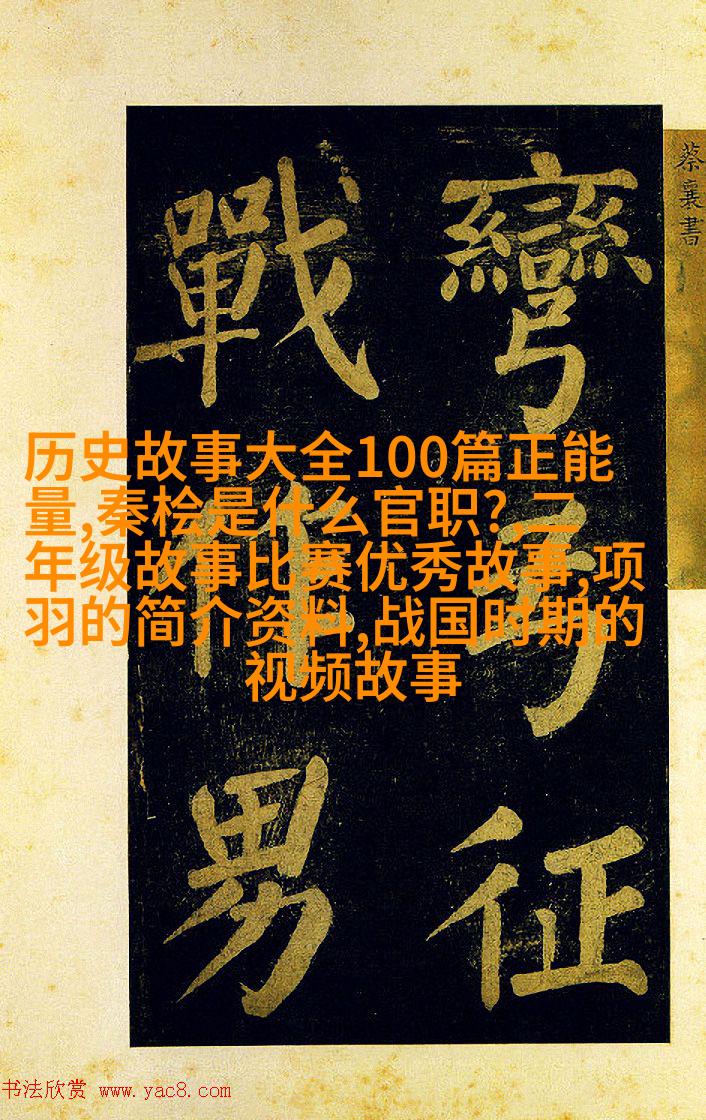 蔡襄書
彎弓征
戰作男
历史故事大全100篇正能
量,秦桧是什么官职?,二
年级故事比赛优秀故事,项
羽的简介资料,战国时期的
视频故事
书法欣赏 www.yac8.com